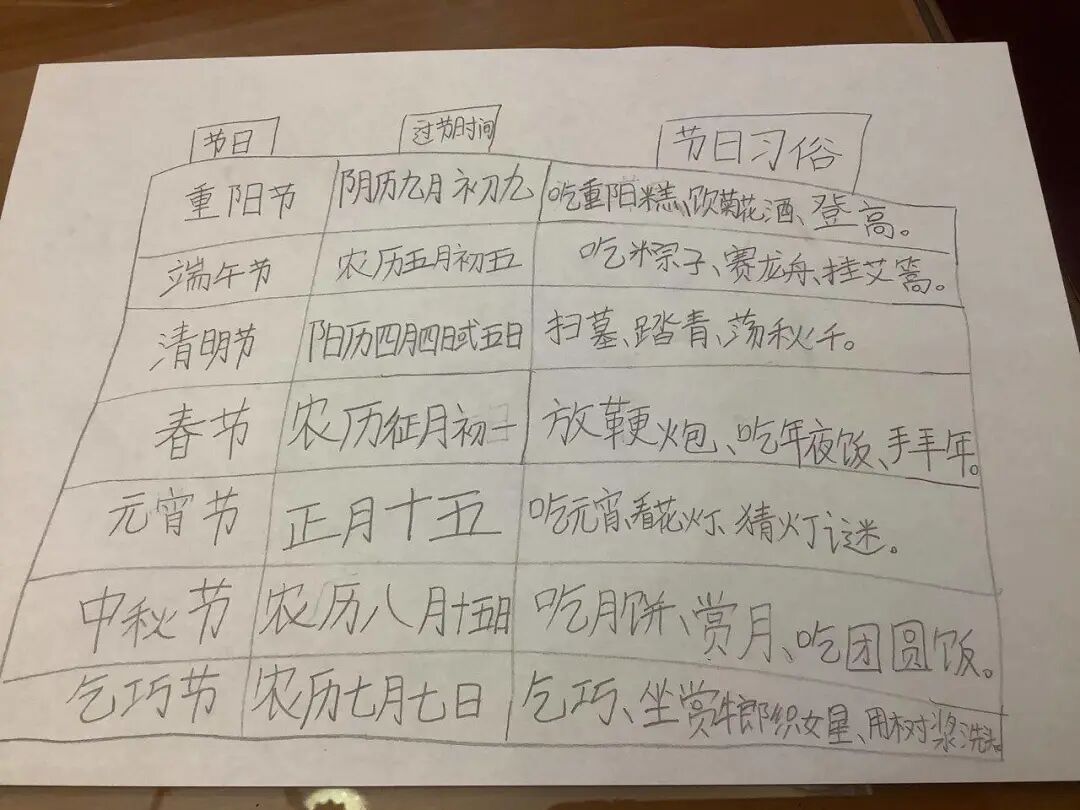 节日 过节时间 节日习俗
重阳节 阴历九月初九 吃重阳糕、饮菊花酒、登高。
端午节 农历五月初五 吃粽子、赛龙舟、挂艾篙。
清明节 阳历四月四日或五日 扫墓、踏青、荡秋千。
春节 农历征月初一 放鞭炮、吃年夜饭、拜年。
元宵节 正月十五 吃元宵、看花灯、猜灯谜。
中秋节 农历八月十五日 吃月饼、赏月、吃团圆饭。
乞巧节 农历七月七日 乞巧、坐赏牛郎织女星、用树浆洗头。